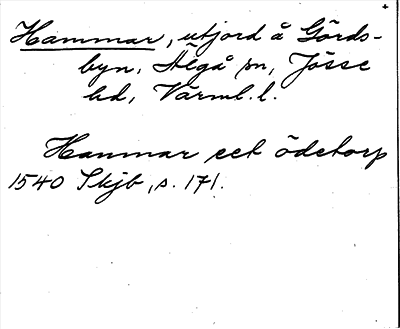 Hammar, utjord å Gärds-
byn, Älgå sn, Jösse
hd, Värml. l.
Hammar eet ödetorp
1540 Skjb, s. 171.